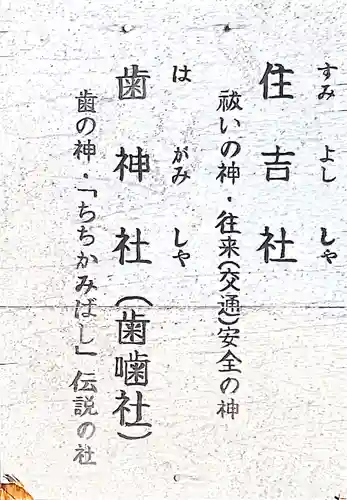 すみよししゃ
住吉社
祓いの神・往来(交通)安全の神
はがみしゃ
歯神社(歯噛社)
歯の神・「ちちかみばし」伝説の社